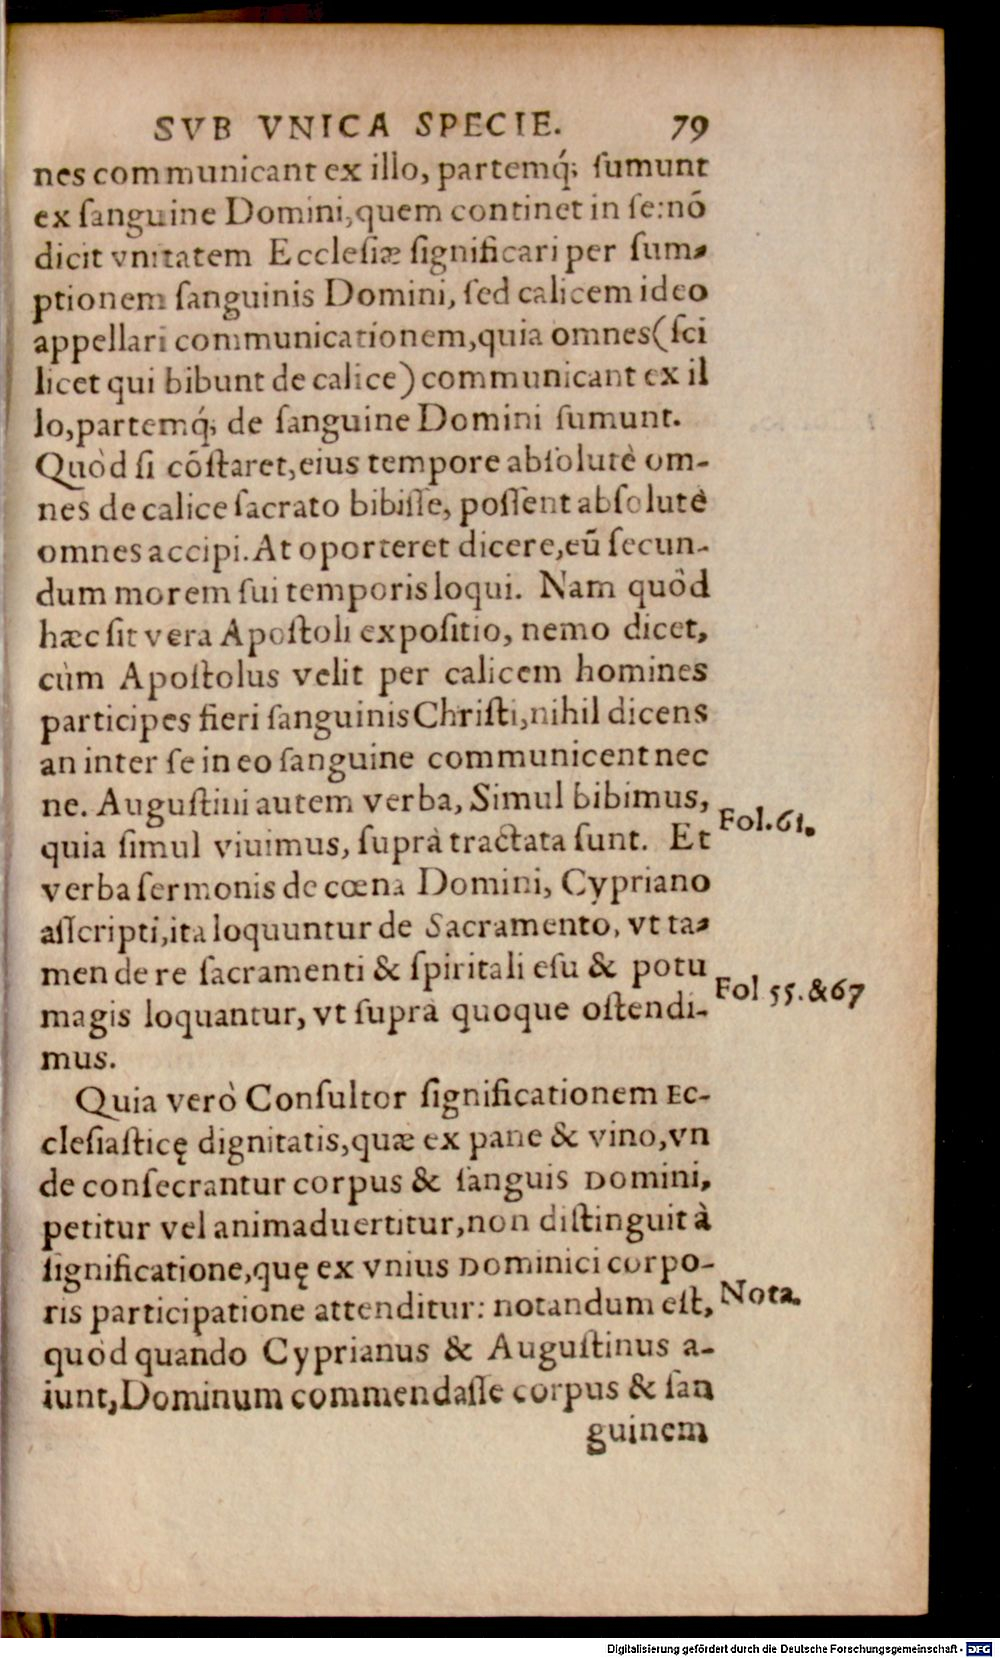 SVB VNICA SPECIE. 79
nes communicant ex illo, partemq́; ſumunt
ex ſanguine Domini, quem continet in ſe: nō
dicit vnitatem Eccleſiæ ſignificari per ſum-
ptionem ſanguinis Domini, ſed calicem ideo
appellari communicationem, quia omnes (ſci
licet qui bibunt de calice) communicant ex il
lo, partemq́; de ſanguine Domini ſumunt.
Quòd ſi cōſtaret, eius tempore abſolutè om-
nes de calice ſacrato bibiſſe, poſſent abſolutè
omnes accipi. At oporteret dicere, eū ſecun-
dum morem ſui temporis loqui. Nam quòd
hæc ſit vera Apoſtoli expoſitio, nemo dicet,
cùm Apoſtolus velit per calicem homines
participes fieri ſanguinis Chriſti, nihil dicens
an inter ſe in eo ſanguine communicent nec
ne. Auguſtini autem verba, Simul bibimus,
quia ſimul viuimus, ſuprà tractata ſunt. Et
Fol. 61.
verba ſermonis de cœna Domini, Cypriano
aſſcripti, ita loquuntur de Sacramento, vt ta-
men de re ſacramenti & ſpiritali eſu & potu
magis loquantur, vt ſuprà quoque oſtendi-
Fol 55. & 67
mus.
Quia verò Conſultor ſignificationem Ec-
cleſiaſticę dignitatis, quæ ex pane & vino, vn
de conſecrantur corpus & ſanguis Domini,
petitur vel animaduertitur, non diſtinguit à
ſignificatione, quę ex vnius Dominici corpo-
ris participatione attenditur: notandum eſt,
Nota.
quòd quando Cyprianus & Auguſtinus a-
iunt, Dominum commendaſſe corpus & ſan
guinem
Digitalisierung gefördert durch die Deutsche Forschungsgemeinschaft - DFG